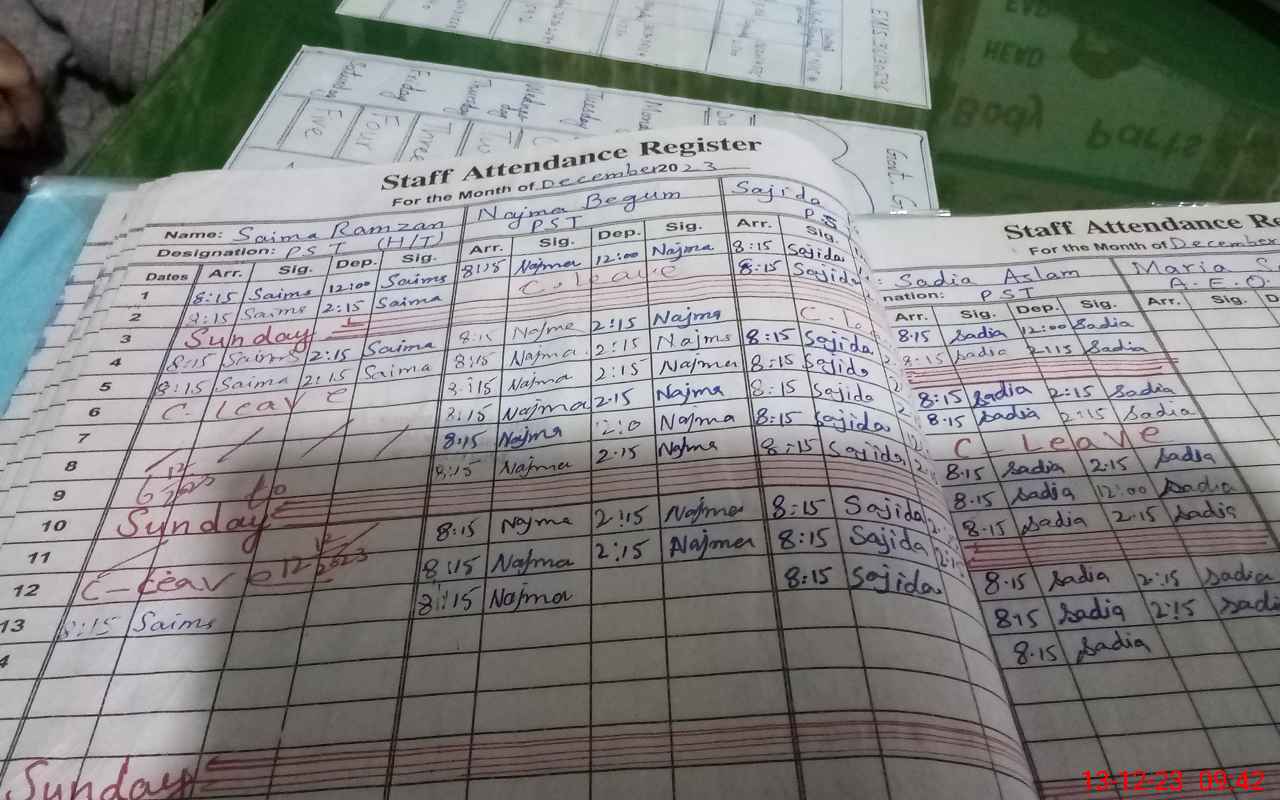 EVE
HEAD
Body
Parts
Saturday Friday Thursday Tuesday
Five Four Three
Govt. G
Staff Attendance Register
For the Month of December 2023
Name: Saima Ramzan Najma Begum Sajida
Designation: PST (H/T) PST PS
Dates Arr. Sig. Dep. Sig. Arr. Sig. Dep. Sig. Arr. Sig.
1 8:15 Saima 12:00 Saima 8:15 Najma 12:00 Najma 8:15 Sajida
2 8:15 Saima 2:15 Saima C. leave 8:15 Sajida
3 Sunday
4 8:15 Saima 2:15 Saima 8:15 Najma 2:15 Najma
5 8:15 Saima 2:15 Saima 8:15 Najma 2:15 Najma 8:15 Sajida
6 C. leave 8:15 Najma 2:15 Najma 8:15 Sajida
7 8:15 Najma 2:15 Najma 8:15 Sajida
8 8:15 Najma Najma 8:15 Sajida
9 8:15 Najma 2:15 Najma 8:15 Sajida
10 Sunday
11 8:15 Najma 2:15 Najma 8:15 Sajida
12 C-leave 8:15 Najma 2:15 Najma 8:15 Sajida
13 8:15 Saima 8:15 Najma 8:15 Sajida
4
Sunday
Staff Attendance Re
For the Month of December
: Sadia Aslam Maria S
nation: PST A.E.O
Arr. Sig. Dep. Sig. Arr. Sig. D
8:15 Sadia 12:00 Sadia
8:15 Sadia 2:15 Sadia
8:15 Sadia 2:15 Sadia
8:15 Sadia 2:15 Sadia
C-Leave
8:15 Sadia 2:15 Sadia
8:15 Sadia 12:00 Sadia
8:15 Sadia 2:15 Sadia
8:15 Sadia 2:15 Sadia
8:15 Sadia 2:15 Sadi
8:15 Sadia
13-12-23 09:42